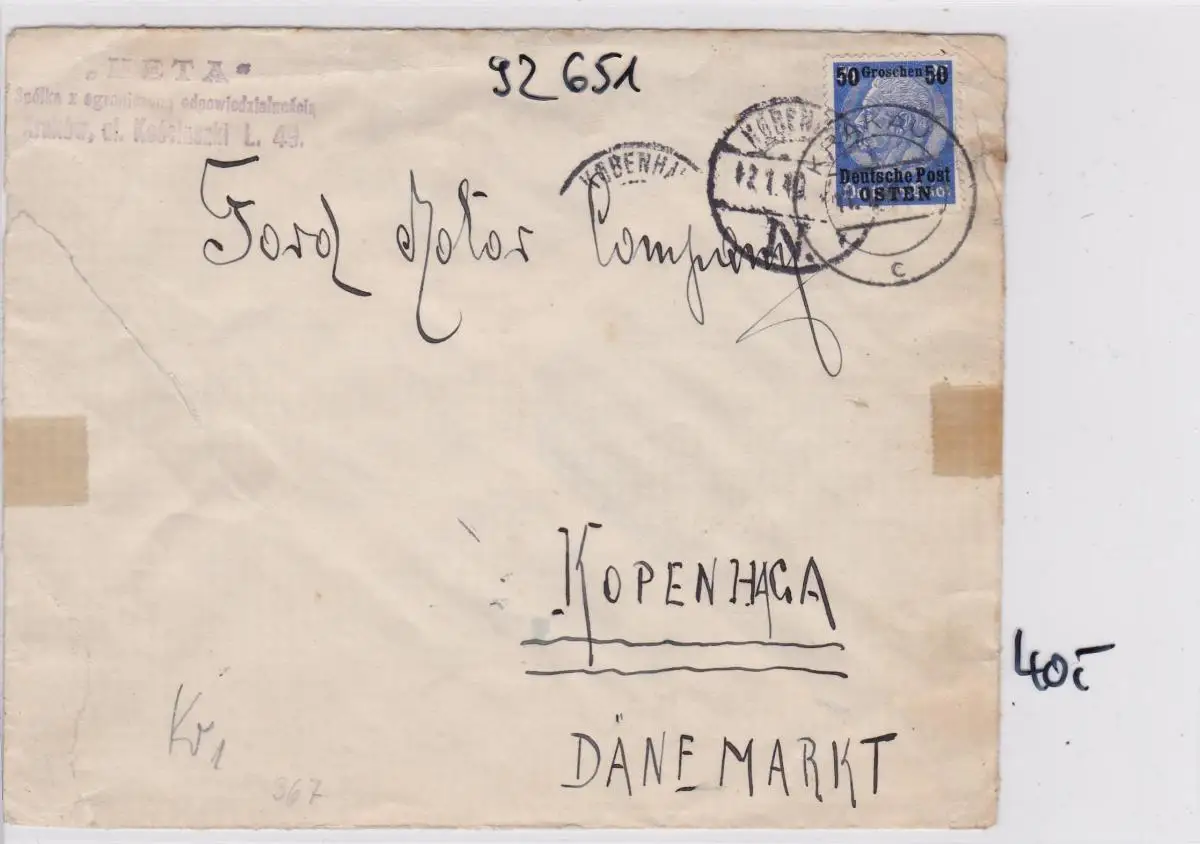 92 651
"META"
Spółka z ograniczoną odpowiedzialnością
Kraków, ul. Kościuszki L. 49.
50 Groschen 50
Deutsche Post
OSTEN
KØBENHA
KØBENH
12.1.40
KRAKAU
c
Ford Motor Company
KOPENHAGA
DÄNEMARKT
40,-
Kr 1
967